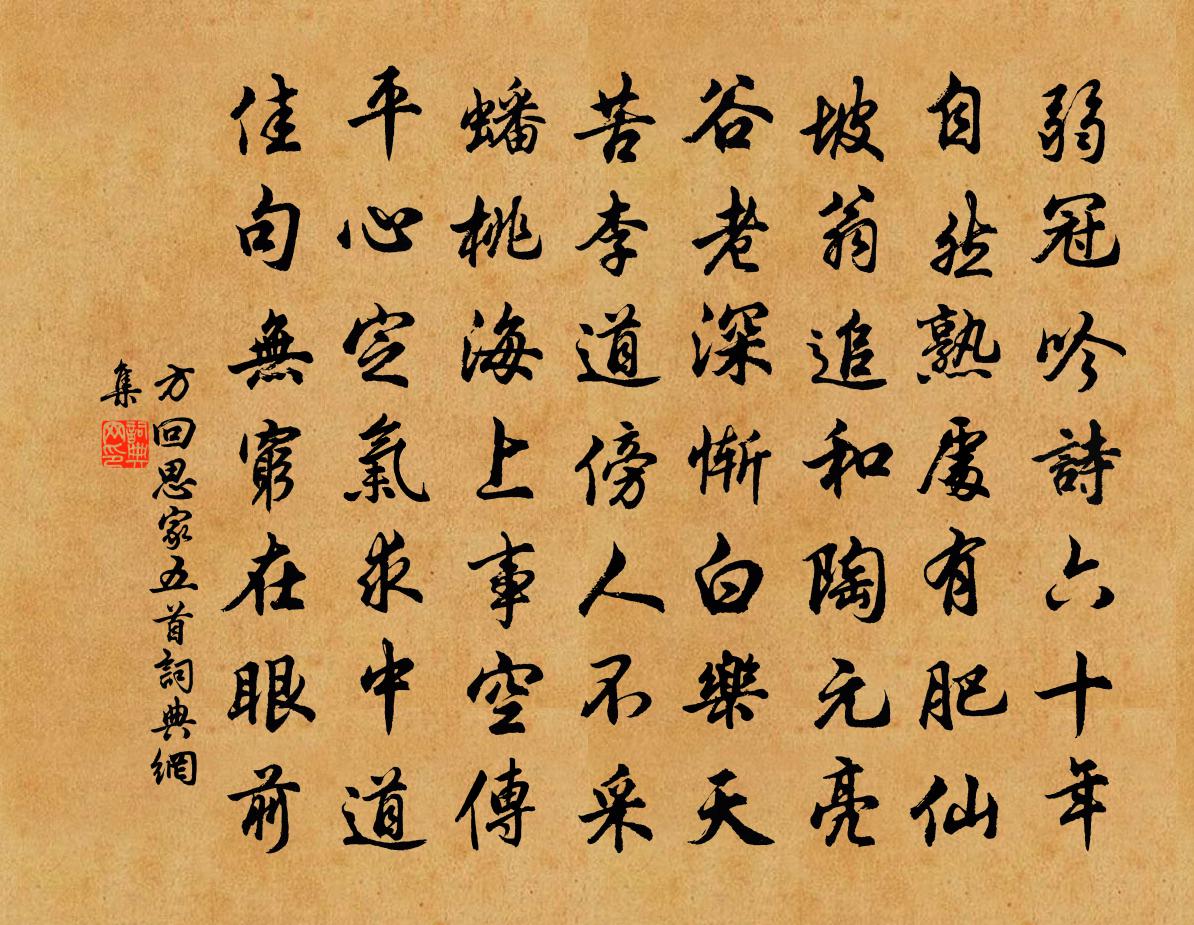 弱冠吟詩六十年
自然熟處有肥仙
坡翁追和陶元亮
谷老深慚白樂天
苦李道傍人不采
蟠桃海上事空傳
平心定氣求中道
佳句無窮在眼前
方回思家五首詞典網
集
詞典
網印